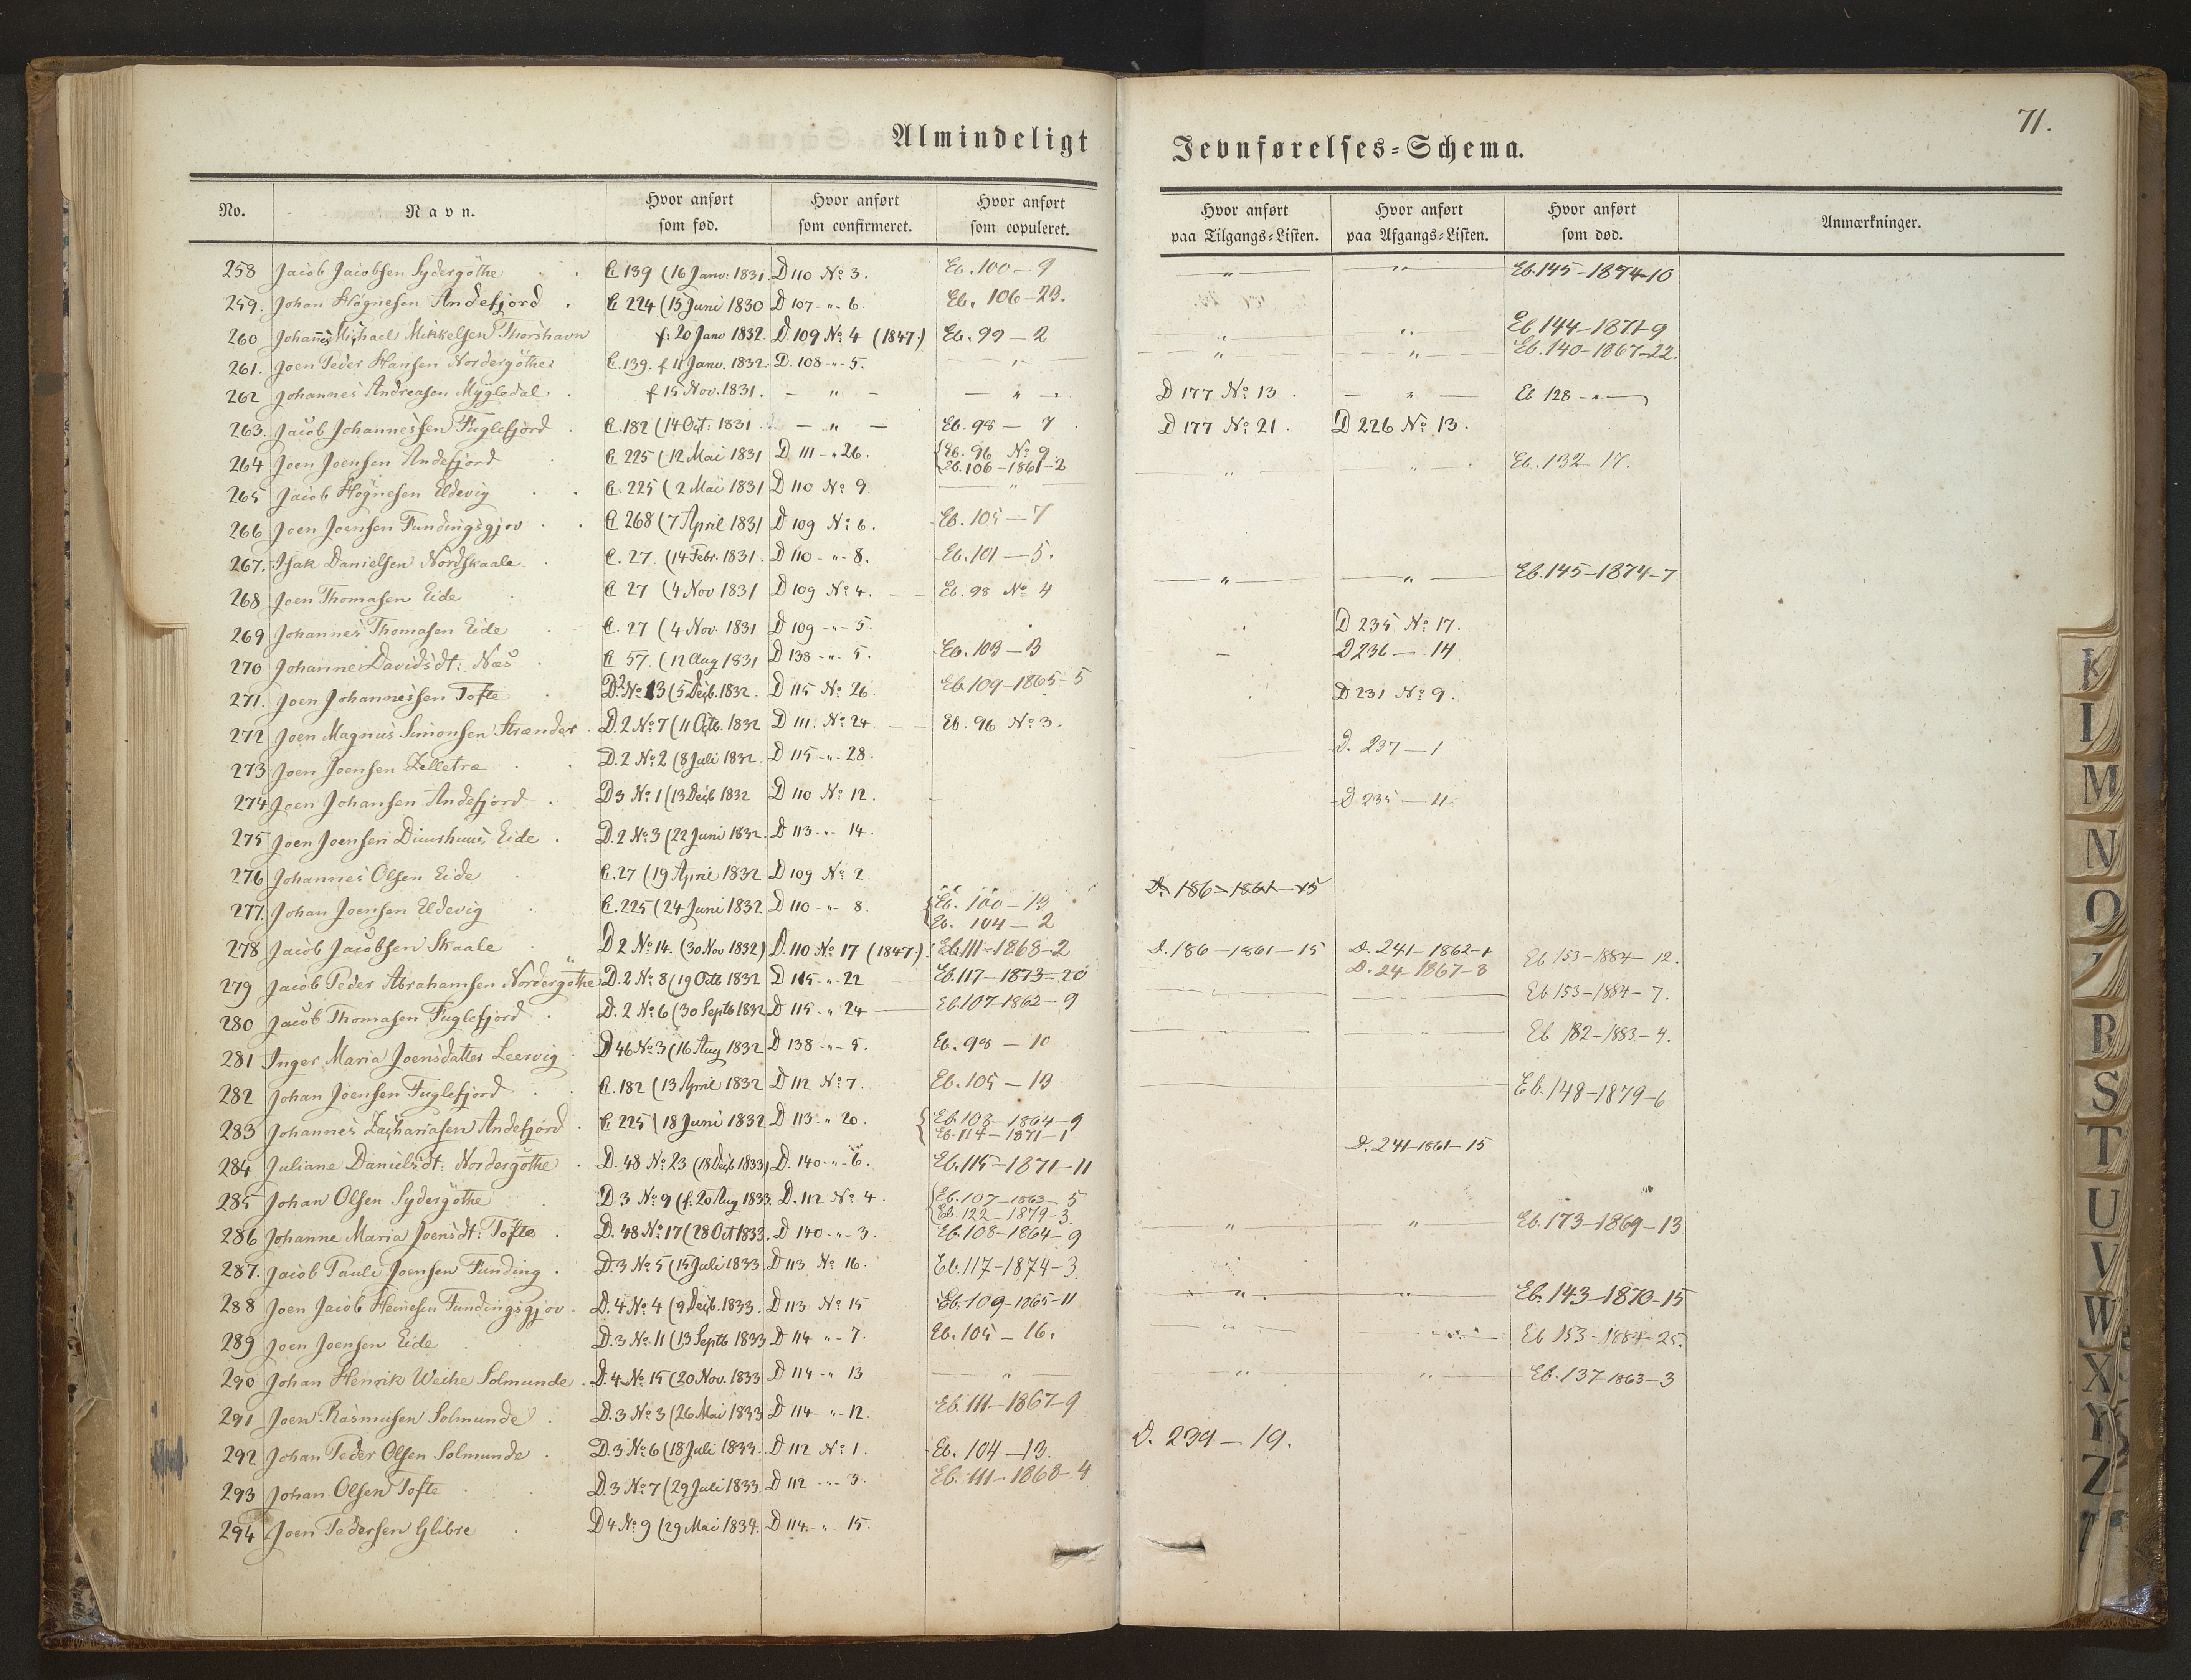 71.
Almindeligt Jevnførelses=Schema.
No. Navn. Hvor anført som fød. Hvor anført som confirmeret. Hvor anført som copuleret. Hvor anført paa Tilgangs=Listen. Hvor anført paa Afgangs=Listen. Hvor anført som død. Anmærkninger.
258 Jacob Jacobsen Sydergöthe C 139 (16 Janv: 1831. D 110 No 3. Eb. 100 — 9 — " — — " — Eb. 145-1874-10
259. Johan Högnesen Andefjord C 224 (15 Juni 1830 D 107 -"- 6. Eb. 106-23.
260 Johannes Michael Mikkelsen Thorshavn f: 20 Janv 1832. D. 109 No 4 (1847.) Eb. 99 — 2 — " — — " — Eb. 144-1871-9
261. Joen Peder Hansen Nordergöthe C. 139. f 11 Janv. 1832. D. 108 -"- 5. — " — — " — — " — Eb. 140-1867-22.
262 Johannes Andreasen Mygledal. f 15 Nov. 1831. — " — — " — D 177 No 13. — " — Eb 128 -"-
263. Jacob Johannessen Fuglefjord C. 182 (14 Oct: 1831 — " — Eb. 98 — 7 D 177 No 21. D 226 No 13.
264 Joen Joensen Andefjord C 225 (12 Mai 1831 D 111 -"- 26. {Eb. 96 No 9. — " — — " — Eb. 132 17.
Eb. 106-1861-2
265 Jacob Högnesen Eldevig C. 225 (2 Mai 1831 D 110 No 9. — " —
266 Joen Joensen Fundingsgjov C 268 (7 April 1831 D 109 No 6. Eb. 105 — 7
267. Isak Danielsen Nordskaale C. 27. (14 Febr. 1831. D 110 -"- 8. Eb. 101 — 5. — " — — " — Eb. 145-1874-7
268 Joen Thomasen Eide C 27 (4 Nov 1831 D 109 No 4. Eb. 98 No 4
269 Johannes Thomasen Eide C. 27 (4 Nov. 1831 D 109 -"- 5. D 235 No 17.
270 Johanne Davidsdt: Næs C 57. (12 Aug 1831 D 138 -"- 5. Eb. 103 — 3 — D 236 — 14
271. Joen Johannessen Tofte D. 2 No 13 (5 Decb. 1832. D 115 No 26. Eb. 109-1865-5 D 231 No 9.
272 Joen Magnus Simonsen Strænder D. 2 No 7 (11 Octb. 1832 D 111. No 24 Eb. 96 No 3.
273 Joen Joensen Zelletræ D. 2 No 2 (8 Juli 1832. D 115 -"- 28. D. 237 — 1
274 Joen Johansen Andefjord D 3 No 1 (13 Decb 1832 D 110 No 12. D 235 — 11
275 Joen Joensen Eide D. 2 No 3 (22 Juni 1832. D 113 -"- 14.
276 Johannes Olsen Eide C. 27 (19 April 1832 D 109 No 2. D. 186-1861-15
277. Johan Joensen Eldevig C. 225 (24 Juni 1832 D 110 -"- 8. {Eb. 100 — 13
Eb. 104 — 2
278 Jacob Jacobsen Skaale D 2 No 14. (30 Nov 1832) D. 110 No 17 (1847.) Eb. 111-1868-2 D. 186-1861-15 D. 241-1862-1 Eb 153-1884-12.
D. 24-1867-8
279 Jacob Peder Abrahamsen Nordergöthe D. 2 No 8 (19 Octb 1832 D 115 -"- 22 Eb. 117-1873-20 Eb 153-1884-7.
280 Jacob Thomasen Fuglefjord D. 2 No 6 (30 Septb 1832 D 115. " 24 Eb. 107-1862-9 Eb 182-1883-4.
281 Inger Maria Joensdatter Leervig D 46 No 3 (16 Aug 1832 D 138 -"- 5. Eb. 98 — 10
282 Johan Joensen Fuglefjord C. 182 (13 April 1832 D 112 No 7. Eb. 105 — 13 Eb. 148-1879-6.
283 Johannes Zachariasen Andefjord C 225 (18 Juni 1832 D 113. " 20. {Eb. 108-1864-9
Eb. 114-1871-1
284 Juliane Danielsdt: Nordergöthe D. 48 No 23 (18 Decb 1833) D. 140 -"- 6. Eb. 115-1871-11 D. 241-1861-15
285 Johan Olsen Sydergöthe D 3 No 9 (f. 20 Aug 1833. D. 112 No 4. {Eb. 107-1863-5
Eb. 122-1879-3.
286 Johanne Maria Joensdt: Tofte D. 48 No 17 (28 Oct 1833. D 140 -"- 3. Eb. 108-1864-9 — " — — " — Eb. 173-1869-13
287. Jacob Pauli Joensen Funding D. 3 No 5 (15 Juli 1833. D 113 No 16. Eb. 117-1874-3
288 Joen Jacob Heinesen Fundingsgjov D. 4 No 4 (9 Decb. 1833. D 113 No 15 Eb. 109-1865-11 — " — — " — Eb. 143-1870-15
289 Joen Joensen Eide D. 3 No 11 (13 Septb 1833 D 114 -"- 7. Eb. 105 — 16. — " — — " — Eb 153-1884-25.
290 Johan Henrik Weihe Solmunde D. 4 No 15 (20 Nov. 1833 D 114 -"- 13 — " — — " — — " — Eb. 137-1863-3
291 Joen Rasmusen Solmunde D. 3 No 3 (26 Mai 1833 D 114 -"- 12. Eb. 111-1867-9
292 Johan Peder Olsen Solmunde D. 3 No 6 (18 Juli 1833. D 112 No 1. Eb. 104 — 13. D. 239 — 19.
293 Johan Olsen Tofte D. 3 No 7 (29 Juli 1833. D 112 -"- 3. Eb. 111-1868-4
294 Joen Pedersen Glibre D 4 No 9 (29 Mai 1834. D 114 -"- 15.
K
I
M
N
O
R
S
T
U
V
W
X
Y
Z